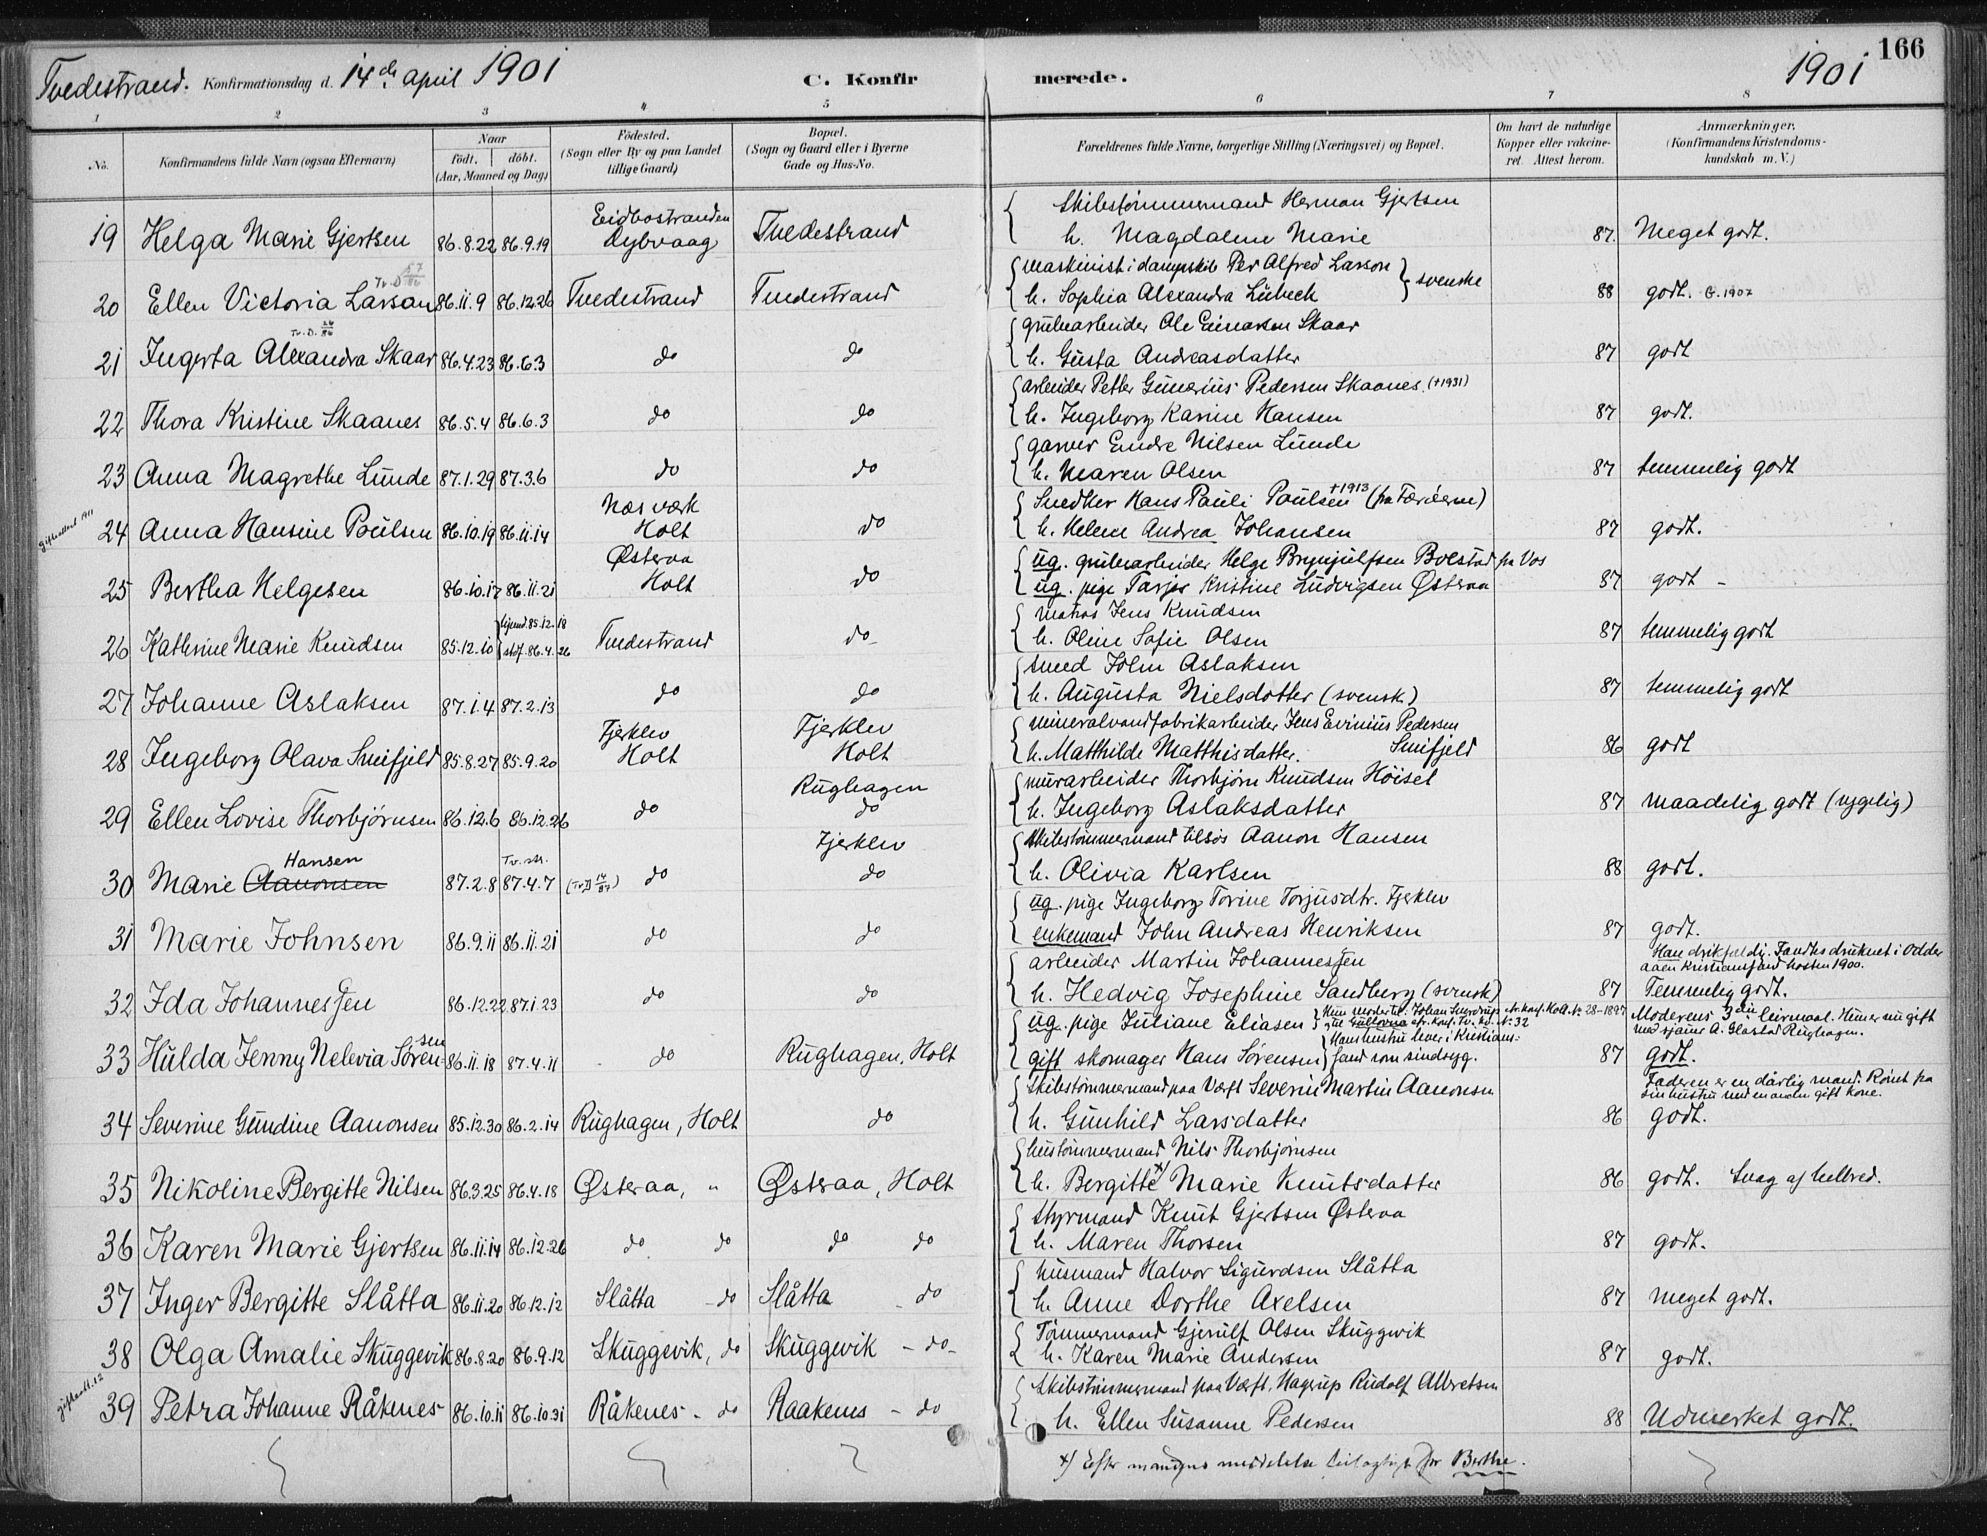 Tvedestrand. Konfirmationsdag d. 14de april 1901 C. Konfirmerede. 1901 166
1 2 3 4 5 6 7 8
No. Konfirmandens fulde Navn (ogsaa Efternavn) Naar født. døbt. (Aar, Maaned og Dag) Fødested. (Sogn eller By og paa Landet tillige Gaard) Bopæl. (Sogn og Gaard eller i Byerne Gade og Hus-No. Forældrenes fulde Navne, borgerlige Stilling (Næringsvei) og Bopæl. Om havt de naturlige Kopper eller vakcineret. Attest herom. Anmærkninger. (Konfirmandens Kristendomskundskab m. V.)
Eidbostranden Skibstømmermand Herman Gjertsen
19 Helga Marie Gjertsen 86.8.22 86.9.19 dybvaag Tvedestrand h. Magdalene Marie 87. Meget godt.
Tv. D. 57/86 maskinist i dampskib Per Alfred Larson } svenske
20 Ellen Victoria Larson 86.11.9 86.12.26 Tvedestrand Tvedestrand h. Sophia Alexandra Lübeck 88 godt. G. 1907
Tv. D. 24/86 grubearbeider Ole Einarsen Skaar
21 Ingerta Alexandra Skaar 86.4.23 86.6.3 do do h. Gusta Andreasdatter 87 godt
arbeider Petter Gunerius Pedersen Skaanes (+1931)
22 Thora Kristine Skaanes 86.5.4 86.6.3 do do h. Ingeborg Karine Hansen 87 godt.
garver Endre Nilsen Lunde
23 Anna Magrethe Lunde 87.1.29 87.3.6 do do h. Maren Olsen 87 temmelig godt
Næs værk Snedker Hans Pauli Poulsen +1913 (fra Færöerne)
24 Anna Hansine Poulsen 86.10.19 86.11.14 Holt do h. Helene Andrea Johansen 87 godt.
Østeraa ug. grubearbeider Helge Brynjulfsen Bolstad fra Vos
25 Bertha Helgesen 86.10.17 86.11.21 Holt do ug. pige Tarjer Kristine Ludvigsen Østeraa 87 godt -
hjemd. 85.12.18 matros Jens Knudsen
26 Kathrine Marie Knudsen 85.12.10 stdf. 86.4.26 Tvedestrand do- h. Oline Sofie Olsen 87 temmelig godt
smed John Aslaksen
27 Johanne Aslaksen 87.1.4 87.2.13 do do h. Augusta Nielsdotter (svensk) 87 temmelig godt
Fjerklev Fjerklev mineralvandfabrikarbeider Jens Evinius Pedersen
28 Ingeborg Olava Snifjeld 85.8.27 85.9.20 Holt Holt h. Matthilde Matthisdatter. Snifjeld 86 godt
Rughagen murarbeider Thorbjørn Knudsen Høisel
29 Ellen Lovise Thorbjørnsen 86.12.6 86.12.26 do do h. Ingeborg Aslaksdatter 87 maadelig godt (sygelig)
Hansen Tv. str. Fjerklev Skibstømmermand tilsøs Aanon Hansen
30 Marie Aanonsen 87.2.8 87.4.7 (Tv. D 14/87) do do h. Olivia Karlsen 88 godt.
ug. pige Ingeborg Torine Torjusdtr. Fjerklev
31 Marie Johnsen 86.9.11 86.11.21 do do enkemand John Andreas Henriksen 87 godt.
arbeider Martin Johannessen Han drikfældig. Fandtes druknet i Odder aaen Kristiansand høsten 1900.
32 Ida Johannessen 86.12.22 87.1.23 do do h. Hedvig Josephine Sandberg (svensk) 87 Temmelig godt.
ug. pige Juliane Eliasen } Moderens 3die leiermaal. Hun er nu gift med sjauer A. Glastad Rughagen.
33 Hulda Jenny Nelevia Sørensen 86.11.18 87.4.11 do Rughagen, Holt gift skomager Hans Sørensen } Hans hustru lever i Kristianssand som sindssyg. 87 godt.
Skibstømmermand paa Værft Severin Martin Aanonsen Faderen er en dårlig mand. Rømt fra sin hustru med en anden gift kone.
34 Severine Gundine Aanonsen 85.12.30 86.2.14 Rughagen, Holt do h. Gunhild Larsdatter 86 godt.
hustømmermand Nils Thorbjørnsen
35 Nikoline Bergitte Nilsen 86.3.25 86.4.18 Østeraa, " Østeraa, Holt h. Bergitte x) Marie Knutsdatter 86 godt. Svag af helbred.
Styrmand Knut Gjertsen Østeraa
36 Karen Marie Gjertsen 86.11.14 86.12.26 do do do do h. Maren Thorsen 87 godt.
husmand Halvor Sigurdsen Slåtta
37 Inger Bergitte Slåtta 86.11.20 86.12.12 Slåtta - do Slåtta - do h. Anne Dorthe Axelsen 87 meget godt.
Tømmermand Gjerulf Olsen Skuggevik
38 Olga Amalie Skuggevik 86.8.20 86.9.12 Skuggevik, do Skuggevik - do- h. Karen Marie Andersen 87 godt.
Skibstømmermand paa Værft, Hagerup Rudolf Albretsen
39 Petra Johanne Råkenes 86.10.11 86.10.31 Råkenes - do Raakenes - do h. Ellen Susanne Pedersen 88 Udmerket godt.
x) Efter mandens meddelelse for Berthe.